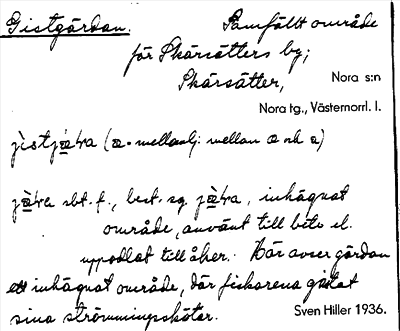 Gistgårdan. Samfällt område
för Skärsätters by;
Skärsätter, Nora s:n
Nora tg., Västernorrl. l.
(æ. mellanlj. mellan æ och a)
sbt. f., best. sg. , inhägnat
område, använt till bete el.
uppodlat till åker. Här avser gårdan
ett inhägnat område, där fiskarena gistat
sina strömmingsskötar. Sven Hiller 1936.